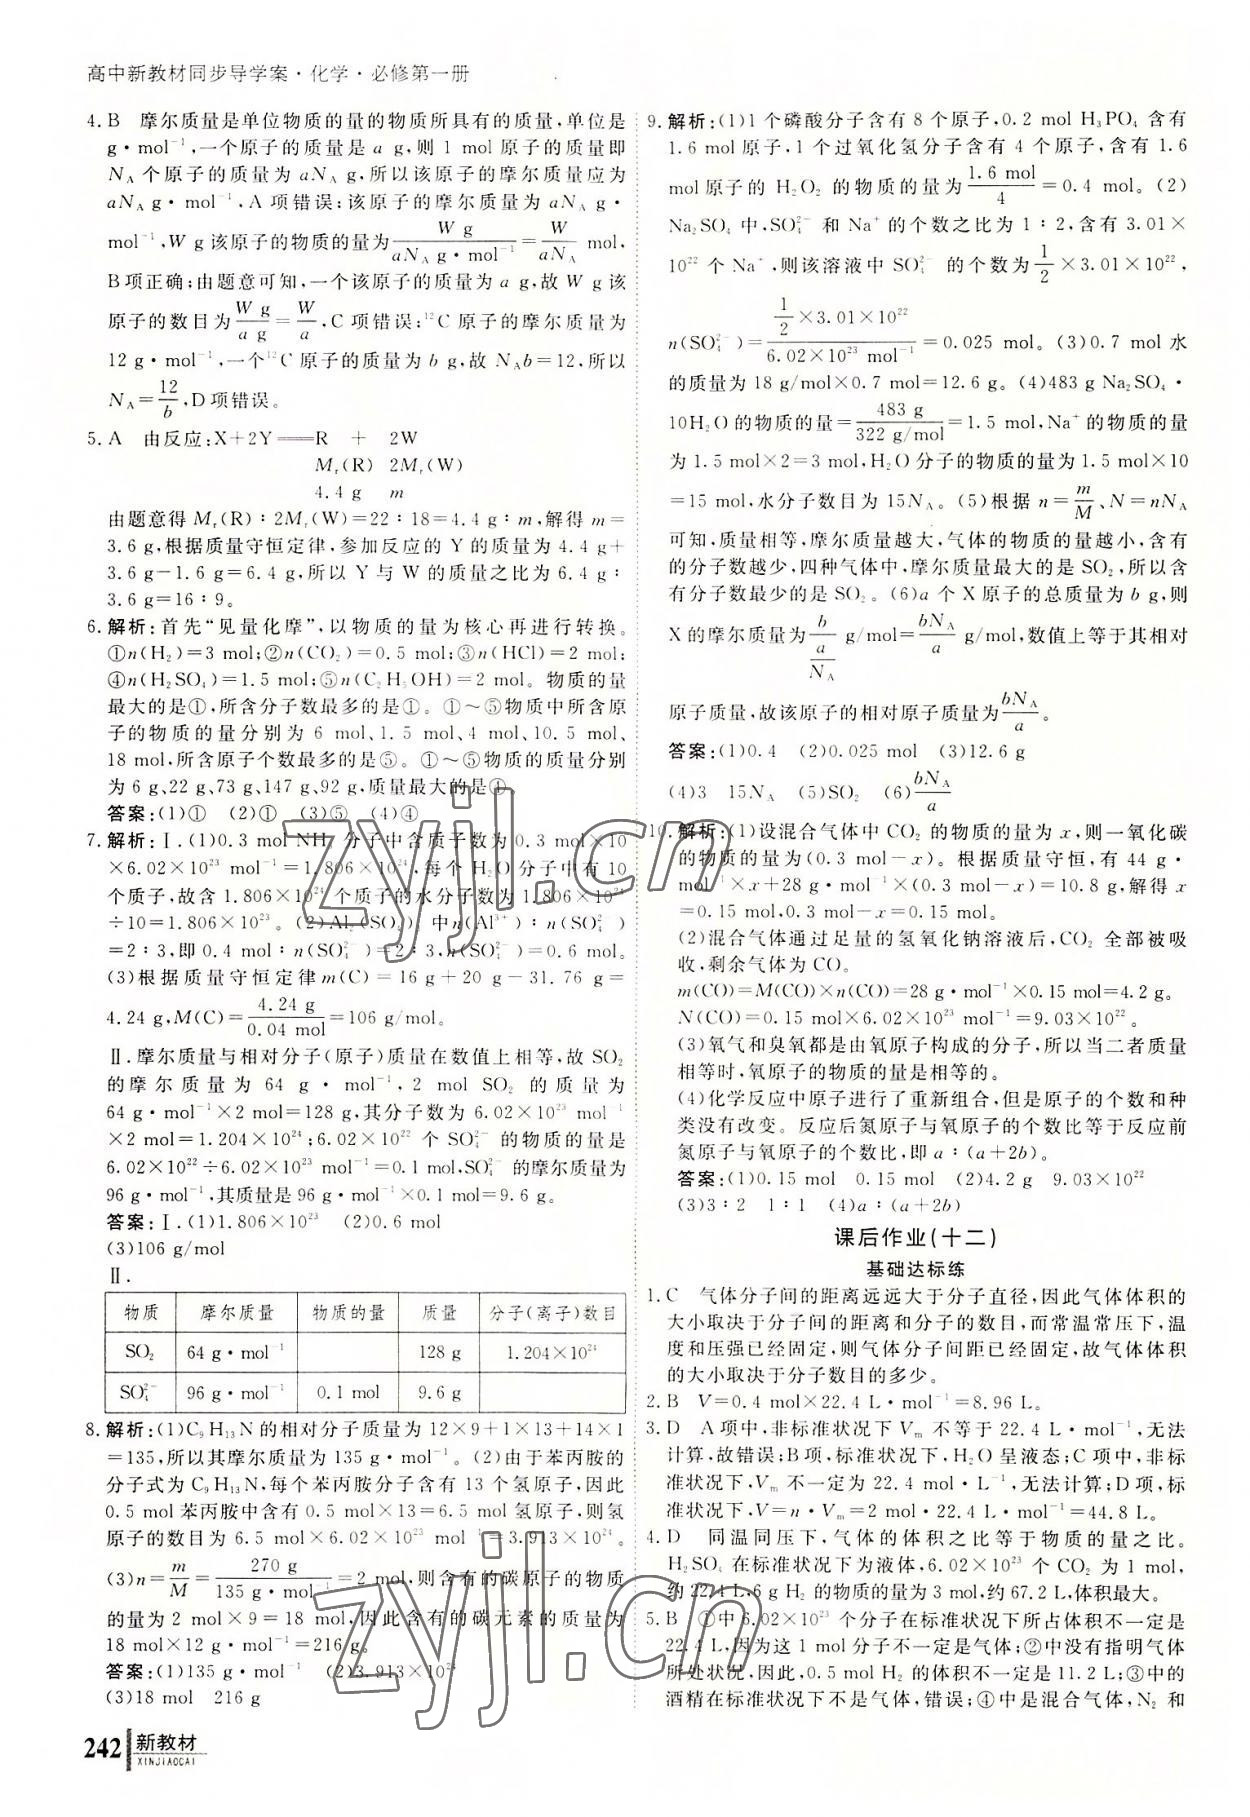 高中新教材同步导学案·化学·必修第一册
4. B 摩尔质量是单位物质的量的物质所具有的质量,单位是
g·mol⁻¹,一个原子的质量是 a g,则 1 mol 原子的质量即
N_A 个原子的质量为 aN_A g,所以该原子的摩尔质量应为
aN_A g·mol⁻¹,A 项错误;该原子的摩尔质量为 aN_A g·
mol⁻¹,W g 该原子的物质的量为 W g/(aN_A g·mol⁻¹)=W/(aN_A) mol,
B项正确;由题意可知,一个该原子的质量为 a g,故 W g 该
原子的数目为 W g/a g=W/a,C 项错误;¹²C 原子的摩尔质量为
12 g·mol⁻¹,一个¹²C 原子的质量为 b g,故 N_A b=12,所以
N_A=12/b,D 项错误。
5. A 由反应:X+2Y══R + 2W
M_r(R) 2M_r(W)
4.4 g m
由题意得 M_r(R)∶2M_r(W)=22∶18=4.4 g∶m,解得 m=
3.6 g,根据质量守恒定律,参加反应的 Y 的质量为 4.4 g+
3.6 g-1.6 g=6.4 g,所以 Y 与 W 的质量之比为 6.4 g∶
3.6 g=16∶9。
6. 解析:首先“见量化摩”,以物质的量为核心再进行转换。
①n(H₂)=3 mol;②n(CO₂)=0.5 mol;③n(HCl)=2 mol;
④n(H₂SO₄)=1.5 mol;⑤n(C₂H₅OH)=2 mol。物质的量
最大的是①,所含分子数最多的是①。①~⑤物质中所含原
子的物质的量分别为 6 mol、1.5 mol、4 mol、10.5 mol、
18 mol,所含原子个数最多的是⑤。①~⑤物质的质量分别
为 6 g、22 g、73 g、147 g、92 g,质量最大的是④
答案:(1)① (2)① (3)⑤ (4)④
7. 解析:Ⅰ.(1)0.3 mol NH₃ 分子中含质子数为 0.3 mol×10
×6.02×10²³ mol⁻¹=1.806×10²⁴,每个 H₂O 分子中有 10
个质子,故含 1.806×10²⁴ 个质子的水分子数为 1.806×10²⁴
÷10=1.806×10²³。(2)Al₂(SO₄)₃ 中n(Al³⁺)∶n(SO₄²⁻)
=2∶3,即 0.4 mol∶n(SO₄²⁻)=2∶3,n(SO₄²⁻)=0.6 mol。
(3)根据质量守恒定律 m(C)=16 g+20 g-31.76 g=
4.24 g,M(C)=4.24 g/0.04 mol=106 g/mol。
Ⅱ.摩尔质量与相对分子(原子)质量在数值上相等,故 SO₂
的摩尔质量为 64 g·mol⁻¹,2 mol SO₂ 的质量为
64 g·mol⁻¹×2 mol=128 g,其分子数为 6.02×10²³ mol⁻¹
×2 mol=1.204×10²⁴;6.02×10²² 个 SO₄²⁻ 的物质的量是
6.02×10²²÷6.02×10²³ mol⁻¹=0.1 mol,SO₄²⁻ 的摩尔质量为
96 g·mol⁻¹,其质量是 96 g·mol⁻¹×0.1 mol=9.6 g。
答案:Ⅰ.(1)1.806×10²³ (2)0.6 mol
(3)106 g/mol
Ⅱ.
物质 摩尔质量 物质的量 质量 分子(离子)数目
SO₂ 64 g·mol⁻¹ 128 g 1.204×10²⁴
SO₄²⁻ 96 g·mol⁻¹ 0.1 mol 9.6 g
8. 解析:(1)C₉H₁₃N 的相对分子质量为 12×9+1×13+14×1
=135,所以其摩尔质量为 135 g·mol⁻¹。(2)由于苯丙胺的
分子式为 C₉H₁₃N,每个苯丙胺分子含有 13 个氢原子,因此
0.5 mol苯丙胺中含有 0.5 mol×13=6.5 mol氢原子,则氢
原子的数目为 6.5 mol×6.02×10²³ mol⁻¹=3.913×10²⁴。
(3)n=m/M=270 g/(135 g·mol⁻¹)=2 mol,则含有的碳原子的物质
的量为 2 mol×9=18 mol,因此含有的碳元素的质量为
18 mol×12 g·mol⁻¹=216 g。
答案:(1)135 g·mol⁻¹ (2)3.913×10²⁴
(3)18 mol 216 g
242 新教材
XINJIAOCAI
9. 解析:(1)1 个磷酸分子含有 8 个原子,0.2 mol H₃PO₄ 含有
1.6 mol原子,1 个过氧化氢分子含有 4 个原子,含有 1.6
mol原子的 H₂O₂ 的物质的量为 1.6 mol/4=0.4 mol。(2)
Na₂SO₄ 中,SO₄²⁻ 和 Na⁺ 的个数之比为 1∶2,含有 3.01×
10²² 个 Na⁺,则该溶液中 SO₄²⁻ 的个数为 1/2×3.01×10²²,
n(SO₄²⁻)=(1/2×3.01×10²²)/(6.02×10²³ mol⁻¹)=0.025 mol。(3)0.7 mol 水
的质量为 18 g/mol×0.7 mol=12.6 g。(4)483 g Na₂SO₄·
10H₂O 的物质的量=483 g/(322 g/mol)=1.5 mol,Na⁺ 的物质的量
为 1.5 mol×2=3 mol,H₂O 分子的物质的量为 1.5 mol×10
=15 mol,水分子数目为 15N_A。(5)根据 n=m/M、N=nN_A
可知,质量相等,摩尔质量越大,气体的物质的量越小,含有
的分子数越少,四种气体中,摩尔质量最大的是 SO₂,所以含
有分子数最少的是 SO₂。(6)a 个 X 原子的总质量为 b g,则
X 的摩尔质量为 b/(a/N_A) g/mol=bN_A/a g/mol,数值上等于其相对
原子质量,故该原子的相对原子质量为 bN_A/a。
答案:(1)0.4 (2)0.025 mol (3)12.6 g
(4)3 15N_A (5)SO₂ (6)bN_A/a
10. 解析:(1)设混合气体中 CO₂ 的物质的量为 x,则一氧化碳
的物质的量为(0.3 mol-x)。根据质量守恒,有 44 g·
mol⁻¹×x+28 g·mol⁻¹×(0.3 mol-x)=10.8 g,解得 x
=0.15 mol,0.3 mol-x=0.15 mol。
(2)混合气体通过足量的氢氧化钠溶液后,CO₂ 全部被吸
收,剩余气体为 CO。
m(CO)=M(CO)×n(CO)=28 g·mol⁻¹×0.15 mol=4.2 g。
N(CO)=0.15 mol×6.02×10²³ mol⁻¹=9.03×10²²。
(3)氧气和臭氧都是由氧原子构成的分子,所以当二者质量
相等时,氧原子的物质的量是相等的。
(4)化学反应中原子进行了重新组合,但是原子的个数和种
类没有改变。反应后氮原子与氧原子的个数比等于反应前
氮原子与氧原子的个数比,即 a∶(a+2b)。
答案:(1)0.15 mol 0.15 mol (2)4.2 g 9.03×10²²
(3)3∶2 1∶1 (4)a∶(a+2b)
课后作业(十二)
基础达标练
1. C 气体分子间的距离远远大于分子直径,因此气体体积的
大小取决于分子间的距离和分子的数目,而常温常压下,温
度和压强已经固定,则气体分子间距已经固定,故气体体积
的大小取决于分子数目的多少。
2. B V=0.4 mol×22.4 L·mol⁻¹=8.96 L。
3. D A 项中,非标准状况下 V_m 不等于 22.4 L·mol⁻¹,无法
计算,故错误;B 项,标准状况下,H₂O 呈液态;C 项中,非标
准状况下,V_m 不一定为 22.4 mol·L⁻¹,无法计算;D 项,标
准状况下,V=n·V_m=2 mol·22.4 L·mol⁻¹=44.8 L。
4. D 同温同压下,气体的体积之比等于物质的量之比。
H₂SO₄ 在标准状况下为液体,6.02×10²³ 个 CO₂ 为 1 mol,
约 22.4 L,6 g H₂ 的物质的量为 3 mol,约 67.2 L,体积最大。
5. B ①中 6.02×10²³ 个分子在标准状况下所占体积不一定是
22.4 L,因为这 1 mol分子不一定是气体;②中没有指明气体
所处状况,因此,0.5 mol H₂ 的体积不一定是 11.2 L;③中的
酒精在标准状况下不是气体,错误;④中是混合气体,N₂ 和
zyjl.cn
zyjl.cn